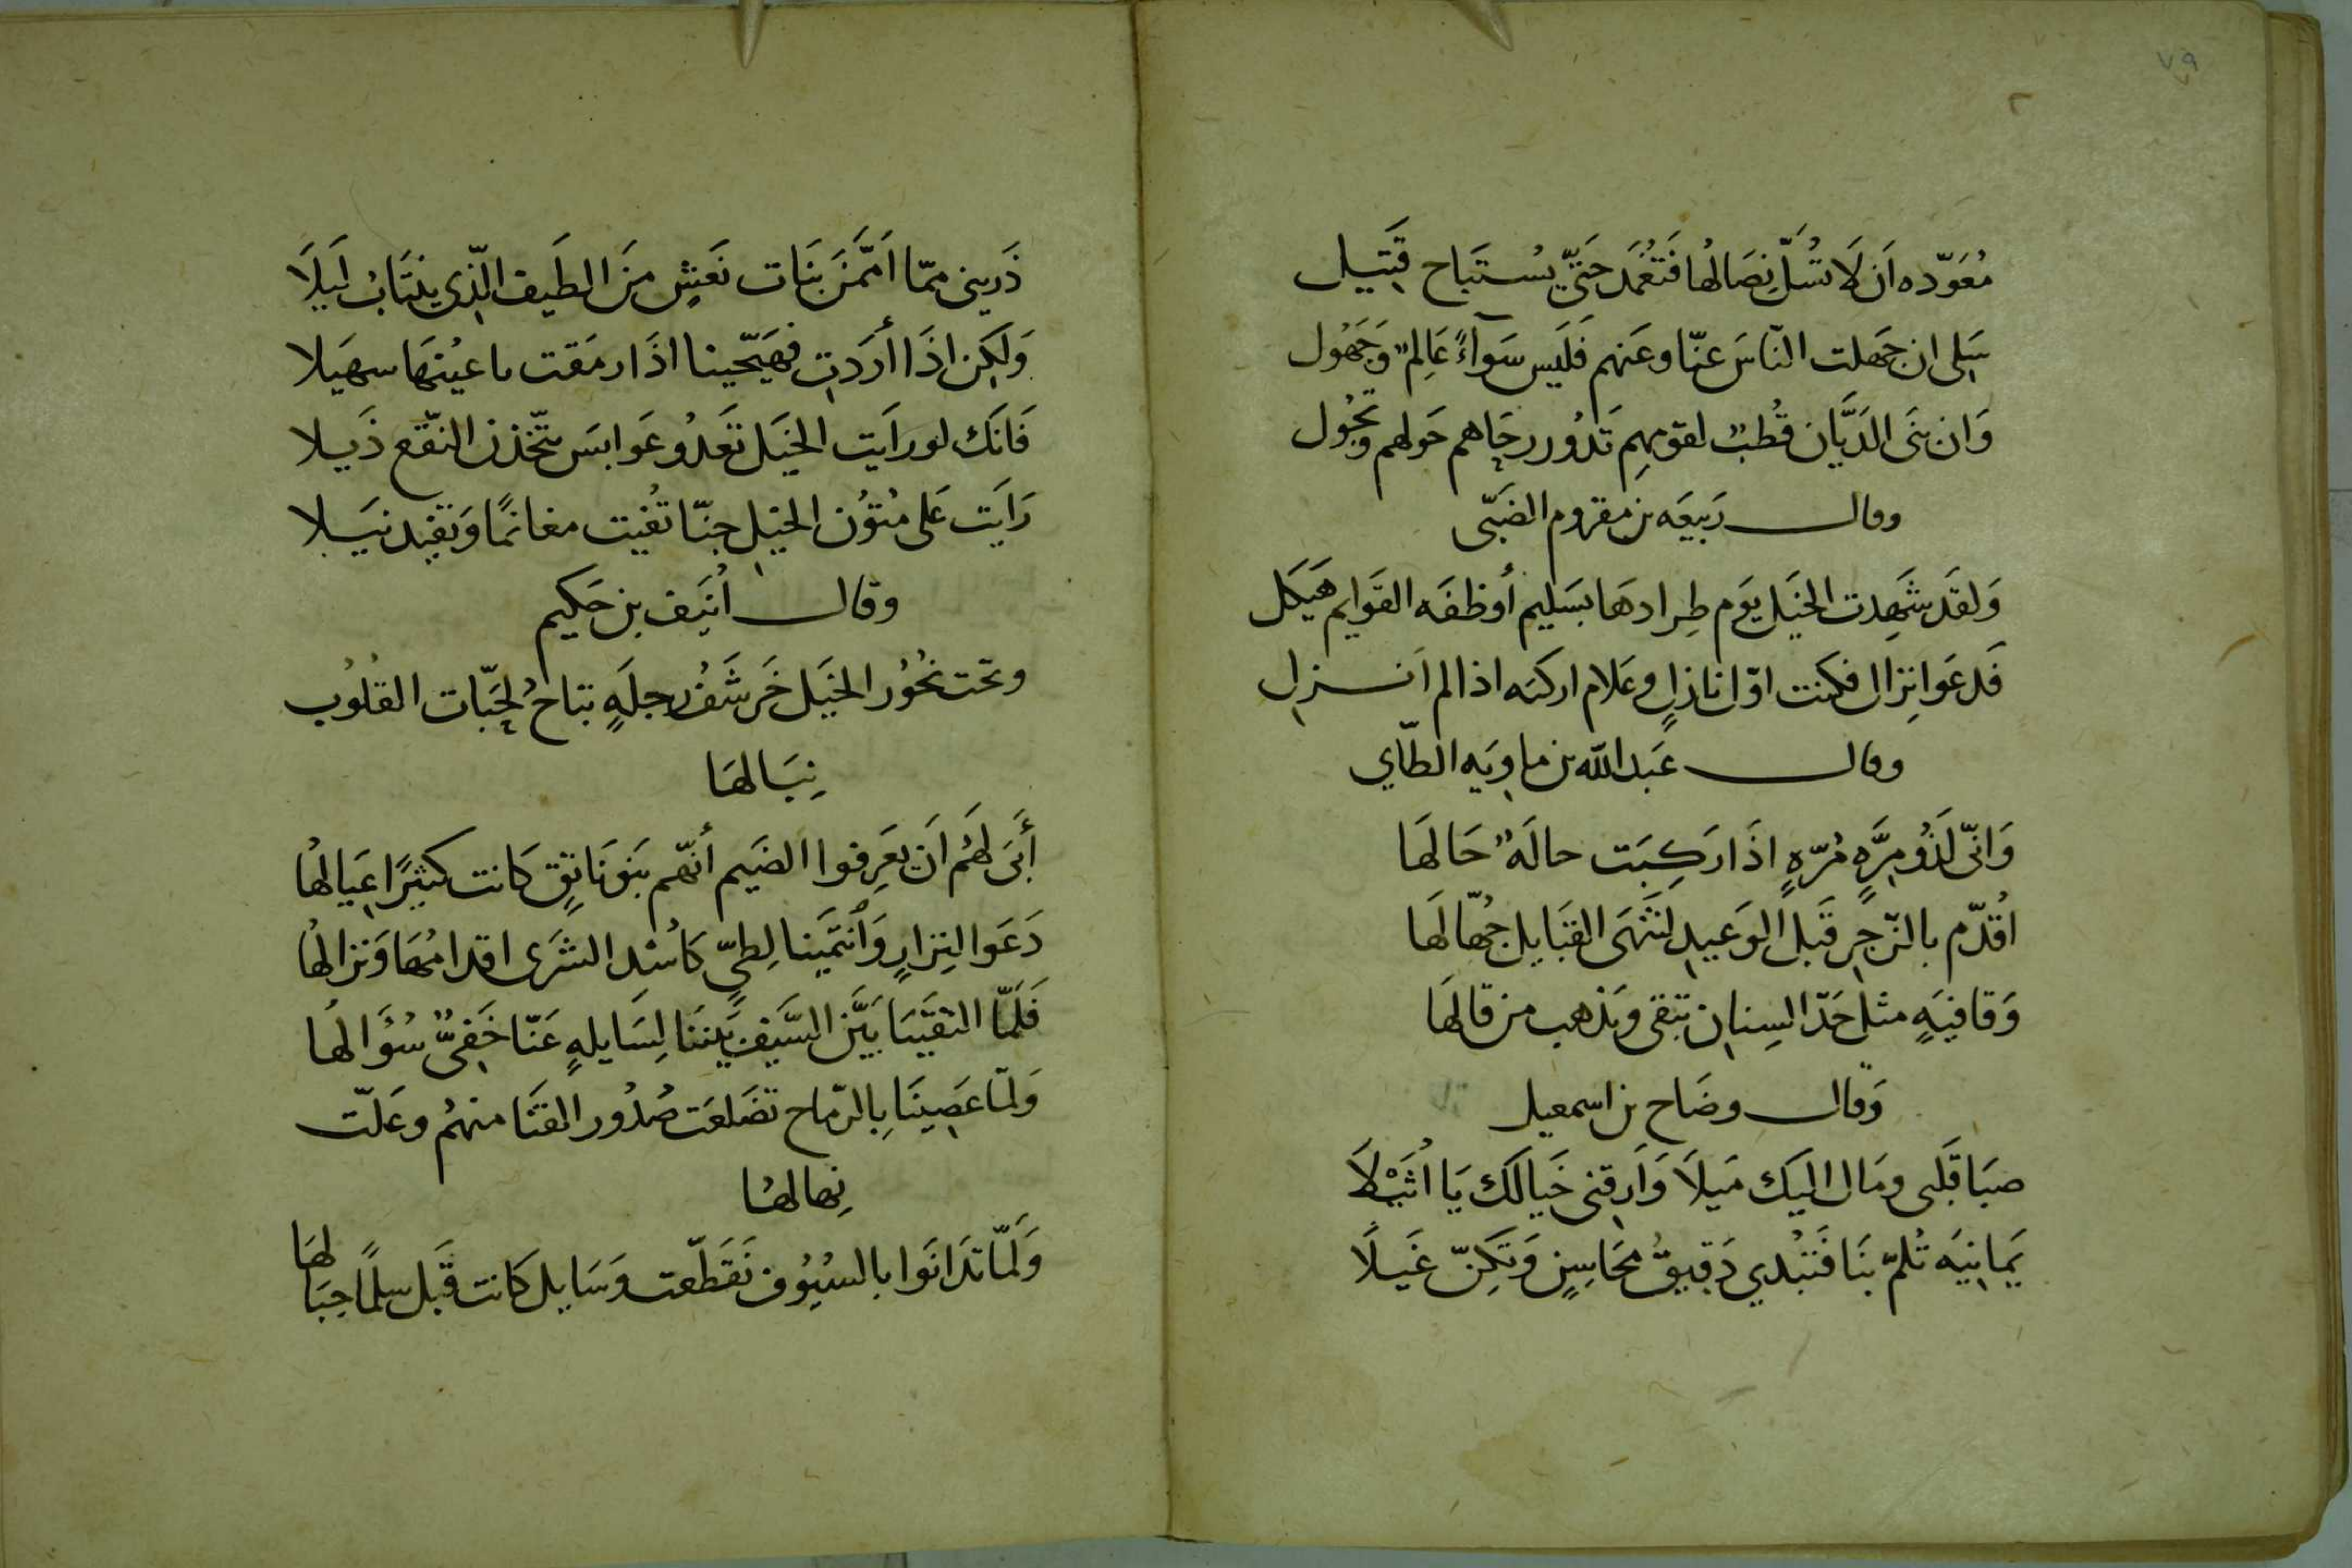 ٧٩
مُعَوّده اَن لَا تُسَلّ نِصَالهُا فَتُغمَد حَتّي يُستَباح قَبِيل
سَلى ان جَهلت النّاسَ عنّا وعَنهم فَلَيس سَوآءً عَالِمٌ وَجَهُول
وَان بنَى الدَيَّان قُطبٌ لقومِهِم تَدُور رحَاهم حَولهم وتَجُول
وقال رَبيعَه بن مقروم الضَبّى
وَلقَد شَهِدت الخيَل يَوم طِرادهَا بسَليم أوظفَه القَوايم هَيكَل
فَدعَوا نِزال فكنت اوّل نازلٍ وعَلام اركبَه اذا لم اَنزل
وقال عَبد الله بن ماويَه الطّاي
وَانّى لَذُو مِرَّهٍ مُرّهٍ اذَا رَكِبَت حالَهٌ حَالهَا
اُقدّم بالزّجرِ قَبل الوَعيدِ لتَنهَى القبَايل جُهّالَها
وَقافيَهٍ مثل حَدّ السِنانِ تبقى وَيَذهب من قالَها
وَقال وضَاح بن اسمعيل
صبَا قَلبى ومَال اليَك مَيلَا وَاَرقنى خَيالَك يَا اُثَيْلَا
يَمانيَه تُلمّ بنَا فَتبُدي دَقيقُ مَحَاسِنٍ وَتَكِنّ غَيلًا
ذَرينى ممّا اَمَّمنَ بنَات نَعَشٍ مِنَ الطَيف الّذى ينتَابُ لَيلَا
وَلَكِن اذَا أرَدتِ فهَيّجينا اذَا رمَقت باعيُنهَا سهَيلا
فَانَك لو رايَت الخيَل تَعَدُو عَوابسَ يتّخذن النقّع ذَيلا
رَايَت عَلى مُتوُن الخيل جنّا تُفيت مغانمًا وَتفيد نيَلا
وقال اُنيَف بن حَكيم
وتحت نُحُور الخيَل خَرشَفُ رجلَهٍ تتاحُ لحَبّات القُلُوب
نِبَالهَا
أَبَى لهَمُ اَن يَعَرِفوا الضَيم أنهّم بَنو نَاتِقٍ كَانت كثيرًا عيَالهُا
دَعَوا لِنزارٍ وَاُنتمَينا لِطيٍّ كَاُسْدِ الشَرَى اقدامُهَا وَنزالهُا
فَلَمّا التقَيَنا بَيَّن السَّيفُ بَينَنا لِسَايلهٍ عَنّا حَفيٌّ سُؤَالهُا
وَلمّا عَصِينَا بِالرّماح تَضَلعَت صُدُور القَنَا منهمُ وعَلّت
نِهالهُا
وَلَمّا تَدَانَوا بالسُيُوف تَقَطّعت وَسَايل كَانت قَبل سلمًا حِبَا
لهَا